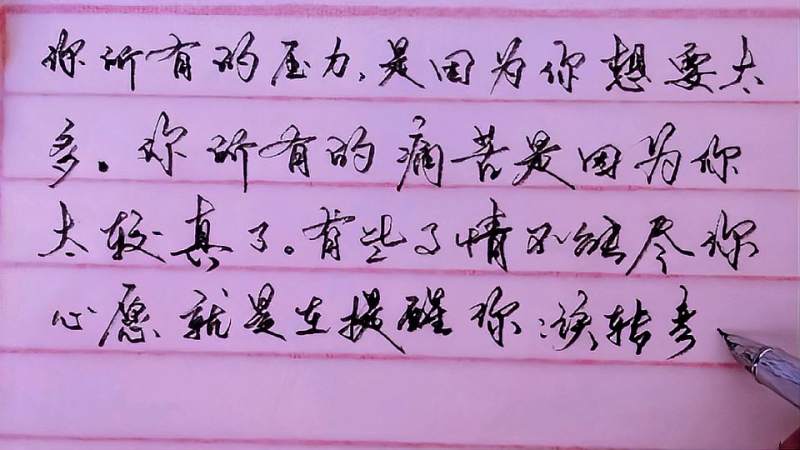 你所有的压力、是因为你想要太
多。你所有的痛苦是因为你
太较真了。有些事情不能尽你
心愿就是在提醒你:该转弯